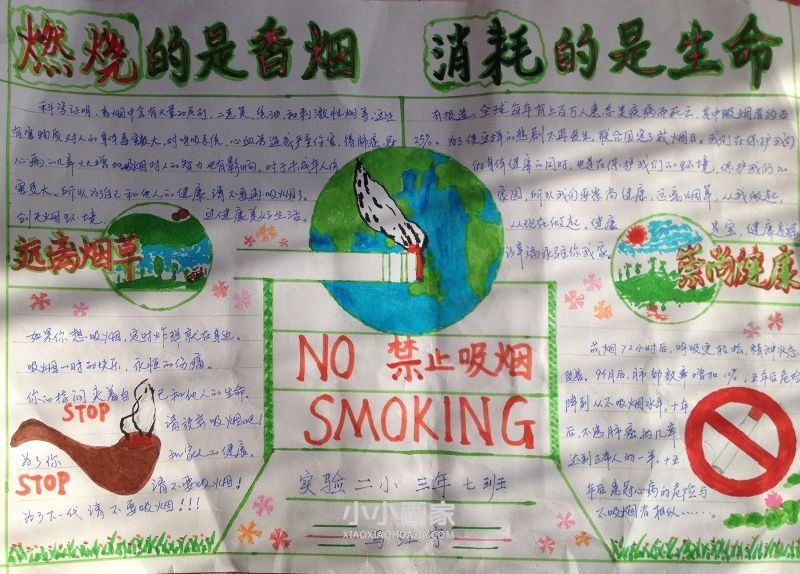 燃烧的是香烟 消耗的是生命
科学证明，香烟中含有大量的尼剂，二恶英，焦油，和刺激性烟等，这些
有害物质对人的身体害处极大，对呼吸系统，心血管造成严重伤害，得肺癌，
心病的几率大大增加吸烟对人的智力也有影响，对于未成年人伤
害更大。所以为了自己和他人的健康，请不要再吸烟了。
创无烟环境 过健康美好生活。
有报道，全球每年有上百万人患各类疾病而死亡，其中吸烟者约占
25%。为了使这样的悲剧不再发生，联合国定了戒烟日。我们在保护我们
的身体健康的同时，也是在保护我们的环境，保护我们的
家园，所以我们要崇尚健康，远离烟草，从我做起，
从现在做起，健康
是宝，健康是福
远离烟草
崇尚健康
如果你想吸烟，定时炸弹就在身边。
吸烟一时的快乐，永恒的伤痛。
你的指间夹着自己和他人的生命。
STOP
请放弃吸烟吧！
为了你和家人的健康。
STOP
请不要吸烟！
为了下一代，请不要吸烟！！！
NO 禁止吸烟
SMOKING
实验二小 三年七班
小小画家
XIAOXIAOHUAJIA.COM
戒烟72小时后，呼吸更轻松，精神状态
改善。9个月后，肺部效率增加10%。五年后危险
降到从不吸烟水平，十年
后，不患肺癌的几率
达到正常人的一半，十五
年后患冠心病的危险与
不吸烟者相似……。